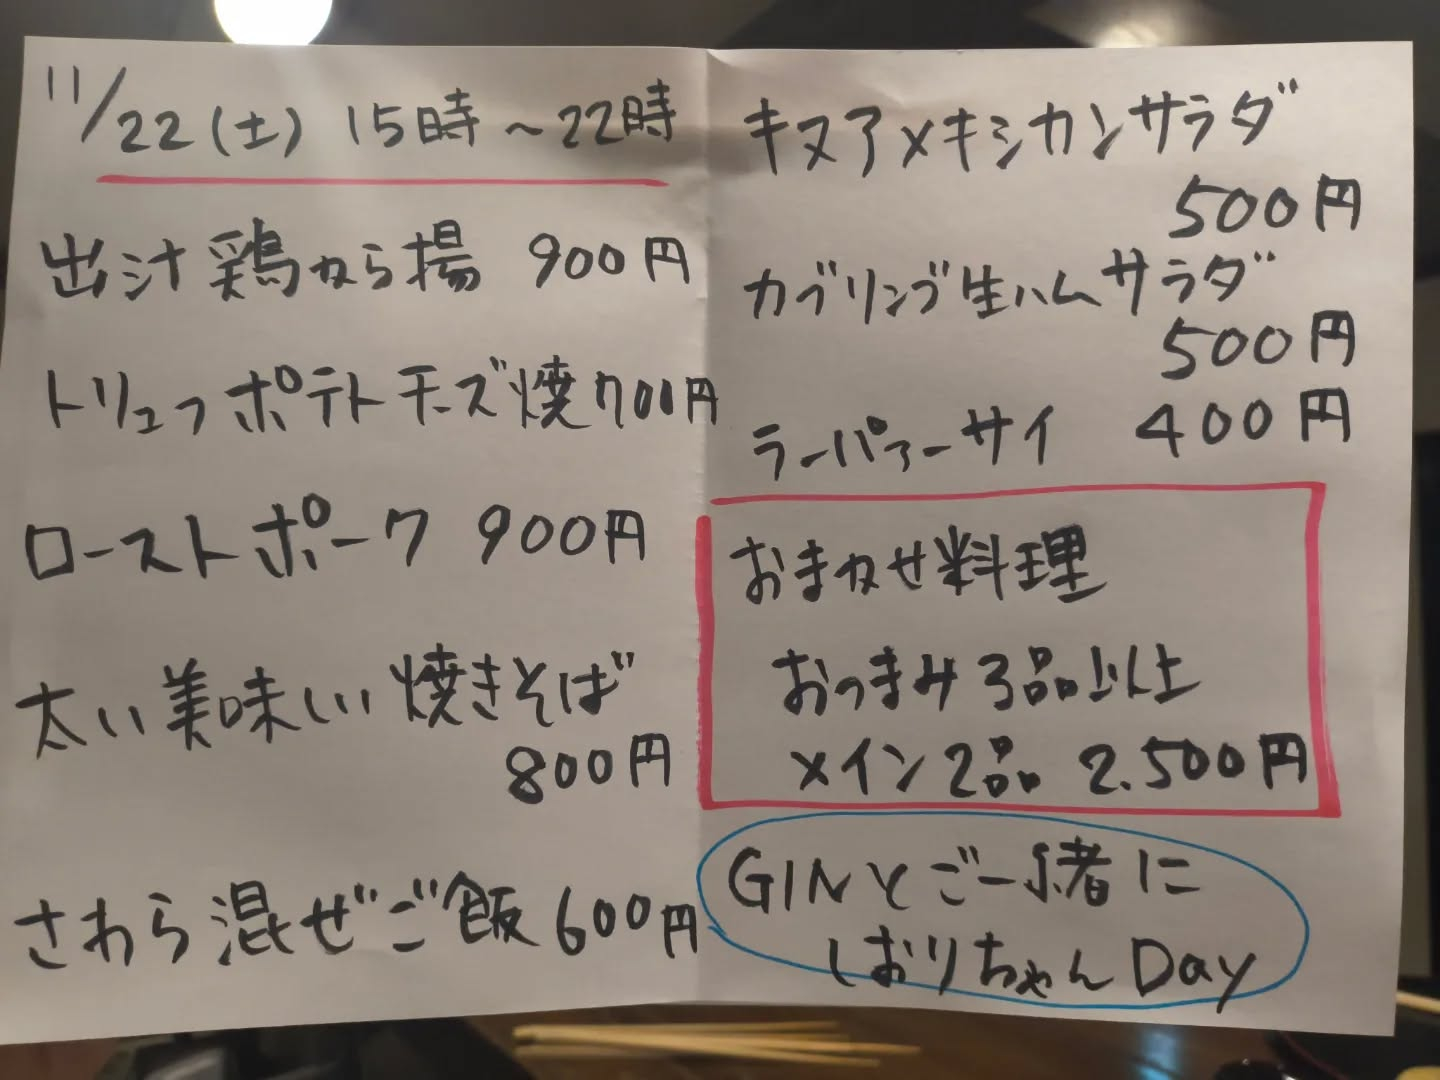 11/22(土) 15時～22時
出汁鶏から揚 900円
トリュフポテトチーズ焼 700円
ローストポーク 900円
太い美味しい焼きそば
800円
さわら混ぜご飯 600円
キヌアメキシカンサラダ
500円
カブリング生ハムサラダ
500円
ラーパァーサイ 400円
おまかせ料理
おつまみ3品以上
メイン2品 2.500円
GINとご一緒に
しおりちゃんDay